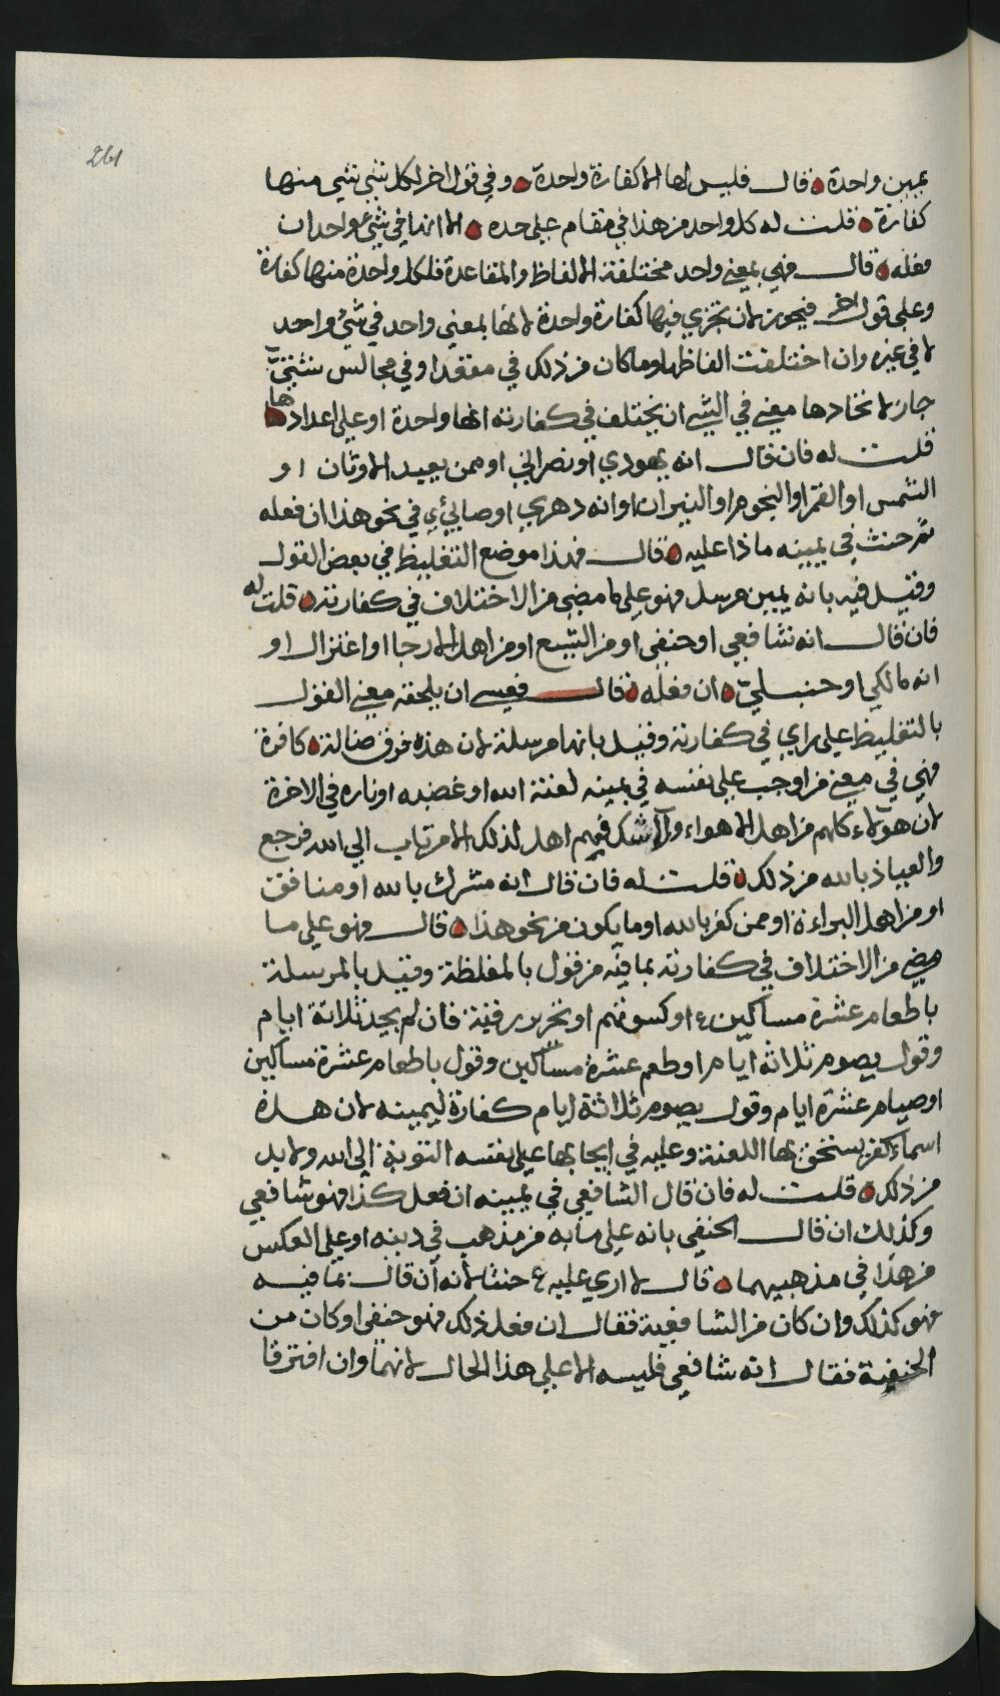 261
يمين واحدة قال فليس لها الا كفارة واحدة وفي قول اخر لكل شي شي منها
كفارة قلت له كل واحد من هذا في مقام على حده الا انها في شيء واحد ان
فعله قال فهي بمعنى واحد مختلفة الالفاظ والمقاعدة فلكل واحدة منها كفارة
وعلى قول اخر فيجوز لان تجزي فيها كفارة واحدة لانها بمعنى واحد في شيء واحد
لا في غيره وان اختلفت الفاظها وما كان من ذلك في مقعد او في مجالس شتى
جاز لاتخادها معنى في الشي ان يختلف في كفارته انها واحدة او على اعدادها
قلت له فان قال انه يهودي او نصراني او ممن يعبد الاوثان او
الشمس او القمر او النجوم او النيران او انه دهري او صابيء في نحو هذا ان فعله
ثم حنث في يمينه ماذا عليه قال فهذا موضع التغليظ في بعض القول
وقيل فيه بانه يمين مرسل فهو على ما مضى من الاختلاف في كفارته قلت له
فان قال انه شافعي او حنفي او من الشيع او من اهل الارجا او اعتزال او
انه مالكي او حنبليّ ان فعله قال فعسى ان يلحقه معنى القول
بالتغليظ على راي في كفارته وقيل بانها مرسلة لان هذه فرق ضالة كافرة
فهي في معنى من اوجب على نفسه في يمينه لعنة الله او غضبه او ناره في الاخرة
لان هؤلاء كلهم من اهل الاهواء ولا شك فهم اهل لذلك الا من تاب الى الله فرجع
والعياذ بالله من ذلك قلت له فان قال انه مشرك بالله او منافق
او من اهل البراءة او ممن كفر بالله او ما يكون من نحو هذا قال فهو على ما
مضى من الاختلاف في كفارته بما فيه من قول بالمغلظة وقيل بالمرسلة
باطعام عشرة مساكين او كسوتهم او تحرير رقبة فان لم يجد ثلاثة ايام
وقول يصوم ثلاثة ايام او طعم عشرة مساكين وقول باطعام عشرة مساكين
او صيام عشرة ايام وقول يصوم ثلاثة ايام كفارة ليمينه لان هذه
اسماء كفر يستحق بها اللعنة وعليه في ايجابها على نفسه التوبة الى الله ولا بد
من ذلك قلت له فان قال الشافعي في يمينه ان فعل كذا فهو شافعي
وكذلك ان قال الحنفي بانه على ما به من مذهب في دينه او على العكس
من هذا في مذهبيهما قال لا ارى عليه حنثا لانه ان قال بما فيه
فهو كذلك وان كان من الشافعية فقال ان فعل ذلك فهو حنفي او كان من
الحنفية فقال انه شافعي فليسه الا على هذا الحال لانهما وان افترقا